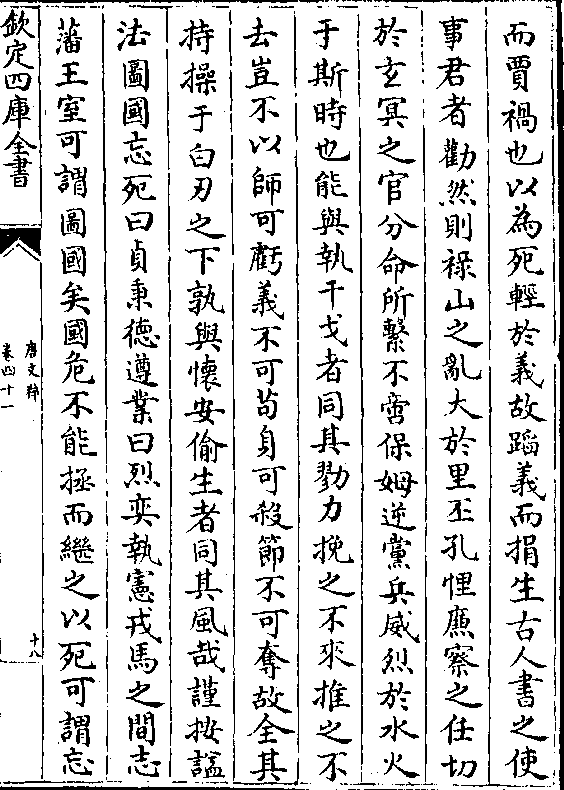 而賈禍也以為死輕於義故蹈義而捐生古人書之使
事君者勸然則祿山之亂大於里丕孔悝廌察之任切
於玄冥之官分命所繫不啻保姆逆黨兵威烈於水火
于斯時也能與執干戈者同其勠力挽之不來推之不
去豈不以師可虧義不可苟身可殺節不可奪故全其
持操于白刃之下孰與懷安偷生者同其風哉謹按謚
法圖國忘死曰貞秉德遵業曰烈奕執憲戎馬之間志
藩王室可謂圖國矣國危不能拯而繼之以死可謂忘
欽定四庫全書
唐文粹
卷四十一
十八